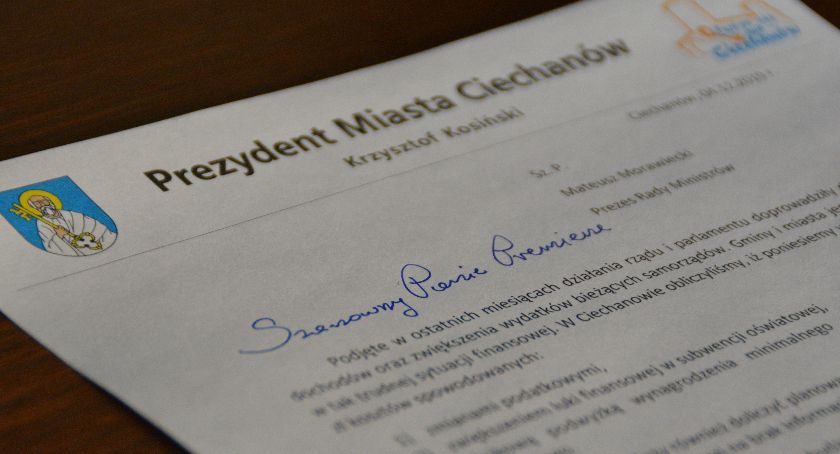 Ciechanów
Prezydent Miasta Ciechanów
Krzysztof Kosiński
Ciechanów, 04.12.2019 r.
Sz. P.
Mateusz Morawiecki
Prezes Rady Ministrów
Szanowny Panie Premierze
Podjęte w ostatnich miesiącach działania rządu i parlamentu doprowadziły
dochodów oraz zwiększenia wydatków bieżących samorządów. Gminy i miasta
w tak trudnej sytuacji finansowej. W Ciechanowie obliczyliśmy, iż poniesiemy
zł kosztów spowodowanych:
zmianami podatkowymi,
zwiększeniem luki finansowej w subwencji oświatowej,
podwyżką wynagrodzenia minimalnego
również doliczyć
na brak